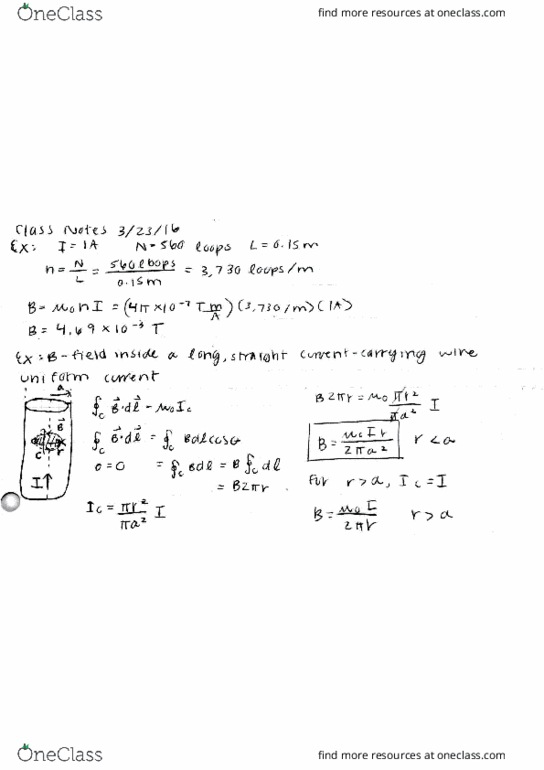 OneClass
find more resources at oneclass.com
Class Notes 3/23/16
Ex: I = 1A N = 560 loops L = 0.15m
n = N/L = 560 loops/0.15m = 3,730 loops/m
B = μ₀nI = (4π × 10⁻⁷ T m/A)(3,730/m)(1A)
B = 4.69 × 10⁻³ T
Ex: B-field inside a long, straight current-carrying wire
uniform current
a
B⃗
c r
I↑
∮c B⃗·dl⃗ = μ₀Ic
∮c B⃗·dl⃗ = ∮c Bdlcosθ
θ=0 = ∮c Bdl = B∮c dl
= B2πr
Ic = πr²/πa² I
B2πr = μ₀ πr²/πa² I
B = μ₀Ir/2πa² r < a
For r > a, Ic = I
B = μ₀I/2πr r > a
OneClass
find more resources at oneclass.com